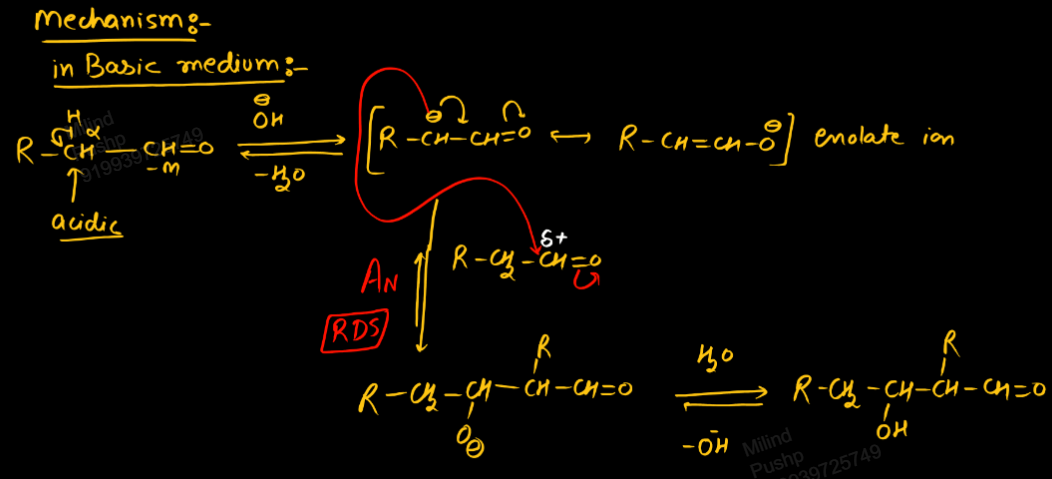 Mechanism:-
in Basic medium:-
H
α
R-CH-CH=O
-m
acidic
⊖
OH
-H2O
[R-CH-CH=O ↔ R-CH=CH-O] enolate ion
⊖
⊖
δ+
R-CH2-CH=O
AN
RDS
R
R-CH2-CH-CH-CH=O
O
⊖
H2O
-OH
R
R-CH2-CH-CH-CH=O
OH
Milind
Pushp
919939725749
Milind
Pushp
9939725749